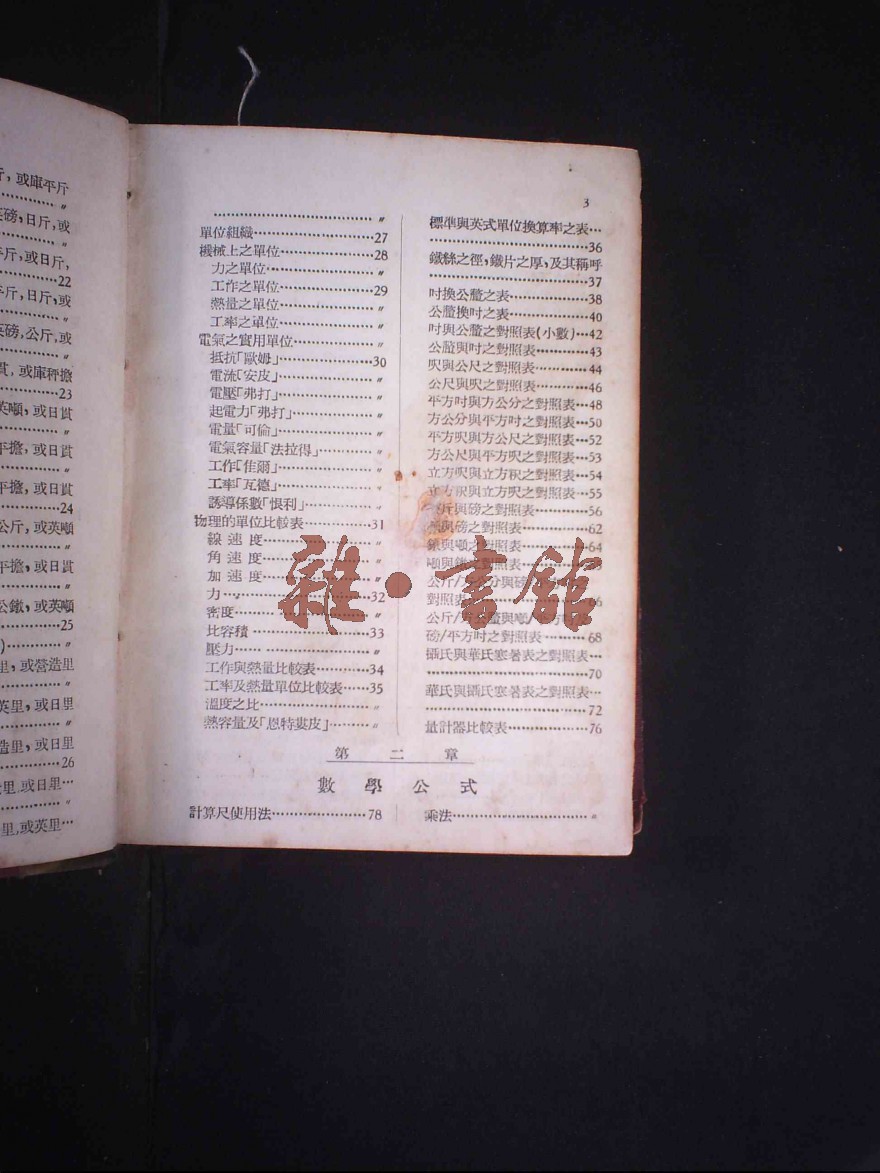 斤，或庫平斤
磅，日斤，或
斤，或日斤，
22
斤，日斤，或
英磅，公斤，或
貫，或庫秤擔
23
英噸，或日貫
平擔，或日貫
平擔，或日貫
24
公斤，或英噸
平擔，或日貫
公鐵，或英噸
25
里，或營造里
英里，或日里
造里，或日里
26
里，或日里
里，或英里
3
………〃
單位組織………27
機械上之單位………28
力之單位………〃
工作之單位………29
熱量之單位………〃
工率之單位………〃
電氣之實用單位
抵抗「歐姆」………30
電流「安皮」………〃
電壓「弗打」………〃
起電力「弗打」………〃
電量「可倫」………〃
電氣容量「法拉得」………〃
工作「佳爾」………〃
工率「瓦德」………〃
誘導係數「恨利」………〃
物理的單位比較表………31
線速度………〃
角速度………〃
加速度………〃
力………32
密度………〃
比容積………33
壓力………〃
工作與熱量比較表………34
工率及熱量單位比較表………35
溫度之比………〃
熱容量及「恩特婁皮」………〃
標準與英式單位換算率之表…
………36
鐵絲之徑，鐵片之厚，及其稱呼
………37
吋換公釐之表………38
公釐換吋之表………40
吋與公釐之對照表(小數)…42
公釐與吋之對照表………43
呎與公尺之對照表………44
公尺與呎之對照表………46
平方吋與方公分之對照表…48
方公分與平方吋之對照表…50
平方呎與方公尺之對照表…52
方公尺與平方呎之對照表…53
立方呎與立方糎之對照表…54
立方糎與立方呎之對照表…55
斤與磅之對照表………56
與磅之對照表………62
與噸之對照表………64
噸與
公斤/方公分與磅
對照表………66
公斤/方公釐與噸
磅/平方吋之對照表………68
攝氏與華氏寒暑表之對照表…
………70
華氏與攝氏寒暑表之對照表…
………72
量計器比較表………76
第二章
數學公式
計算尺使用法………78
乘法………〃
雜·書館